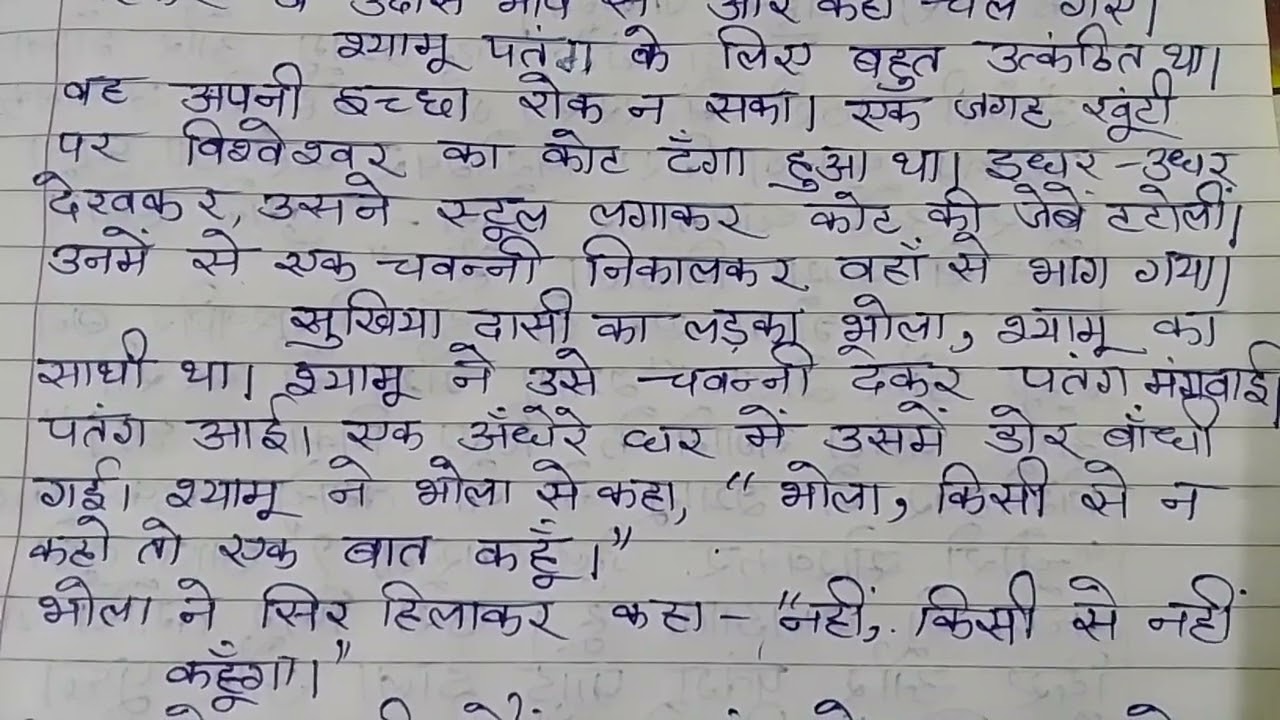 उदास भाव से और कहीं चले गए।
श्यामू पतंग के लिए बहुत उत्कंठित था।
वह अपनी इच्छा रोक न सका। एक जगह खूंटी
पर विश्वेश्वर का कोट टँगा हुआ था। इधर-उधर
देखकर, उसने स्टूल लगाकर कोट की जेबें टटोलीं।
उनमें से एक चवन्नी निकालकर वहाँ से भाग गया।
सुखिया दासी का लड़का भोला, श्यामू का
साथी था। श्यामू ने उसे चवन्नी देकर पतंग मंगवाई।
पतंग आई। एक अँधेरे घर में उसमें डोर बाँधी
गई। श्यामू ने भोला से कहा, “भोला, किसी से न
कहो तो एक बात कहूँ।”
भोला ने सिर हिलाकर कहा - “नहीं, किसी से नहीं
कहूँगा।”